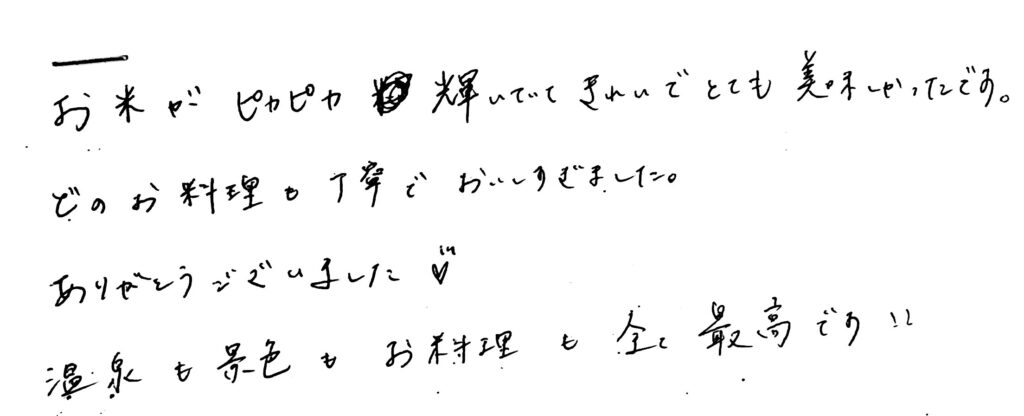 お米がピカピカ輝いていてきれいでとても美味しかったです。
どのお料理も丁寧でおいしすぎました。
ありがとうございました♡
温泉も景色もお料理も全て最高です!!